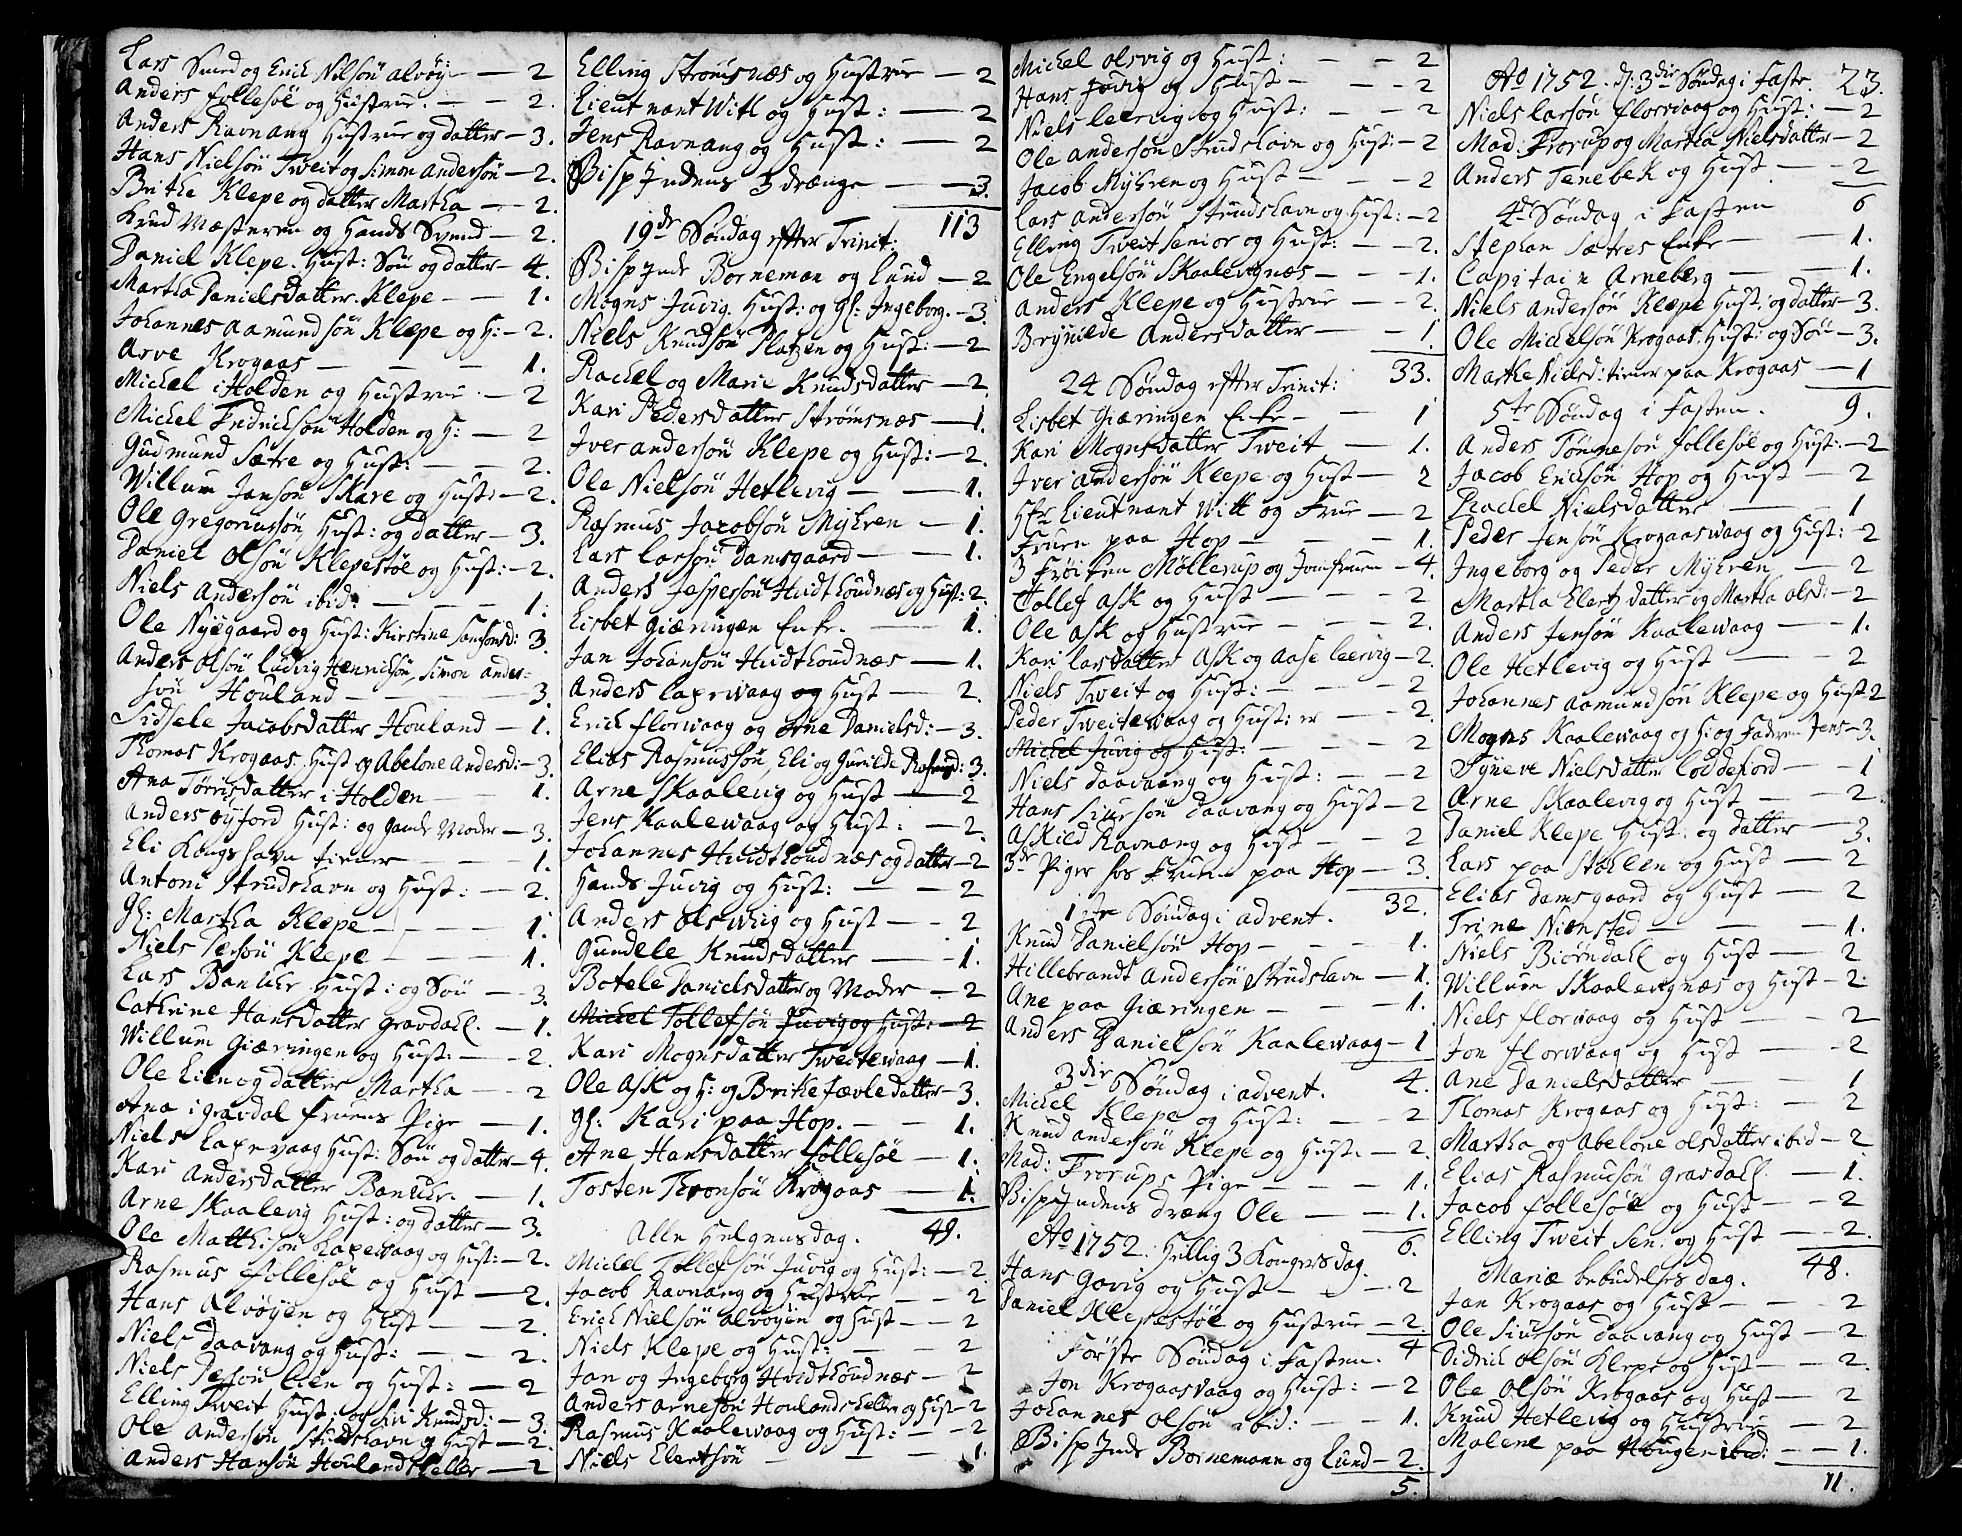 Lars Smed og Erich Nilsön alvöy: — 2
Anders follesöe og Hustrue. — — 2.
Anders Ravnang Hustrue og datter — 3.
Hans Nielsön Tweit og Simon Andersön — 2.
Brithe Klepe og datter Martha — — 2.
Knud Mæsteren og Hands Svend — 2.
Daniel Klepe. Hust: Sön og datter — 4.
Martha Danielsdatter Klepe — — 1.
Johannes aamundsön Klepe og H: — 2.
Arve Krogaas — — — 1.
Michel i Holden og Hustrue — 2
Michel Fredrichsön Holden og H: — 2
Gudmund Sætre og Hust: — — 2.
Willum Jansön Skare og Hust: — 2.
Ole Gregoriussön, Hust: og datter — 3.
Daniel Olsön Klepestöe og Hust: — 2.
Niels Andersön ibid: — — — 1.
Ole Nygaard og Hust: Kirstine Samsonsd: 3.
Anders Olsön Ludvig Henrichsön, Simon ander=
sön Houland — — — 3.
Sidsele Jacobsdatter Houland — 1.
Thomas Krogaas. Hust og Abelone Andersd: — 3.
Ana Törrisdatter i Holden — — 1.
Anders öyjord Hust: og hands Moder — 3.
Eli Kongshavn tiener — — 1.
Antoni Strudshavn og Hust: — 2.
Gl: Martha Klepe — — — 1.
Niels Persön Klepe — — — 1.
Lars Banchr Hust: og Sön — 3.
Cathrine Hansdatter Gravdahl. — 1.
Willum Giæringen og Hust: — — 2.
Ole Lien og datter Martha — 2
Ana i Gravdal fruens Pige — 1.
Niels Laxevaag Hust: Sön og datter — 4.
Kari Andersdatter Banchr. — 1.
Arne Skaalevig Hust: og datter — 3.
Ole Matthisön Laxevaag og Hust: — 2.
Rasmus follesöe og Hust — 2.
Hans Alvöyen og Hust — — 2.
Niels Daavang og Hust: — — 2.
Niels Persön Lien og Hust: — 2
Elling Tweit Hust: og Siri Knudsd: — 3.
Ole Andersön Strudshavn og Hust — 2.
Anders Hansön Houlandsheller — 2
Elling Strömsnæs og Hustrue — 2
Lieutnant Witt og Hust: — 2
Jens Ravnang og Hust: — 2
Bisp Indens 3 drænge — — 3.
113
19de Söndag efter Trinit:
Bisp Inds Borneman og Lund — 2
Mogns Juvig. Hust: og Gl: Ingeborg. — 3.
Niels Knudsön Platzen og Hust: — 2
Rachel og Marie Knudsdatter — 2.
Kari Pedersdatter Strömsnæs — 1.
Iver andersön Klepe og Hust: — 2.
Ole Nielsön Hetlevig — — 1.
Rasmus Jacobsön Myhren — 1.
Lars Larsön Damsgaard — — 1.
Anders Jespersön Hidthoudnæs og Hust: 2.
Lisbet Giæringen Enke. — 1.
Jan Johansön Hidthoudnæs — 1.
Anders Laxevaag og Hust — 2.
Erich florvaag og Ane Danielsd: — 3.
Elias Rasmussön, Eli og Gunilde Rasmusd: 3.
Arne Skaalevig og Hust — 2
Jens Kaalewaag og Hust: — 2.
Johannes Hidthoudnæs og datter — 2
Hands Juvig og Hust: — — 2
Anders Olswiig og Hust — — 2
Gundele Knudsdatter — — 1.
Botele Danielsdatter og Moder — 2
Michel Tollefsön Juvig og Hust: — 2
Kari Mognsdatter Tweitewaag — 1.
Ole Ask og H: og Brithe Jævledatter — 3.
Gl: Kari paa Hop. — — 1.
Ane Hansdatter follesöe — 1.
Tosten Thronsön Krogaas — 1.
Alle Helgensdag. 49.
Michel Tollefsön Juvig og Hust: — 2.
Jacob Ravnang og Hustrue — — 2
Erich Nielsön alvöyen og Hust — — 2
Niels Klepe og Hust: — — 2
Jan og Ingeborg Hidthoudnæs — 2
Anders arnesön Houlandsheller og Hust — 2
Rasmus Kaalewaag og Hust: — — 2
Niels Elertsön — — — 1.
Michel Olsvig og Hust: — — 2
Hans Juvig og Hust — — — 2
Niels Leervig og Hust: — — 2
Ole andersön Strudshavn og Hust: — 2
Jacob Myhren og Hust — — — 2
Lars andersön Strudshavn og Hust: — 2
Elling Tweit Senior og Hust: — — 2.
Ole Engelsön Skaalevignæs — — 1.
Anders Klepe og Hustrue — — 2.
Brynilde Andersdatter — — 1.
24 Söndag efter Trinit: 33.
Lisbet Giæringen Enke — — 1
Kari Mognsdatter Tweit — 1.
Iver andersön Klepe og Hust — 2
Hr Lieutnant Witt og Frue — 2
Fruen paa Hop — — — 1.
3 Fröiken Möllerup og Jomfruen — 4.
Tollef Ask og Hust — — — 2
Ole Ask og Hustrue — — — 2.
Kari Larsdatter Ask og Aase Leervig — 2.
Niels Tweit og Hust: — — — 2
Peder Tweitewaag og Hust: er — — 2.
Michel Juvig og Hust: — — — 2
Niels Daavaang og Hust: — — 2
Hans Siursön Daavang og Hust — 2
Askild Ravnang og Hust — — 2
3de Piger hos Fruen paa Hop — 3.
1ste Söndag i advent. 32.
Knud Danielsön Hop — — — 1.
Hillebrandt Andersön Strudshavn — 1.
Ane paa Giæringen — — — 1.
Anders Danielsön Kaalewaag — 1
3die Söndag i advent. 4.
Michel Klepe og Hust: — — 2
Knud andersön Klepe og Hust. — 2.
Mad: Frorups Pige — — — 1.
Bisp Indens dræng Ole — — 1.
Ao 1752. Hellig 3 Kongers dag. 6.
Hans Govig og Hust — — — 2
Daniel Klepestöe og Hustrue — 2.
Förste Söndag i Fasten. 4
Jon Krogaasvaag og Hust: — 2
Johannes Olsön ibid: — — 1.
Bisp Inds Bornemann og Lund — 2.
5.
Ao 1752. D: 3die Söndag i Faste. 23.
Niels Larsön florvaag og Hust: — 2
Mad: Frorup og Martha Nielsdatter — 2
Anders Tenebek og Hust — 2
4de Söndag i Fasten 6
Stephan Sætres Enke — — 1.
Capitain Arneberg — — 1.
Niels andersön Klepe Hust: og datter — 3.
Ole Michelsön Krogaas. Hust: og Sön — 3.
Marthe Nielsd: tiener paa Krogaas — 1
5te Söndag i Fasten. 9.
Anders Tönnesön follesöe og Hust: — 2
Jacob Erichsön Hop og Hust — 2
Rachel Nielsdatter — — 1
Peder Jensön Krogaaswaag og Hust: — 2
Ingeborg og Peder Myhren — 2
Martha Elertzdatter og Martha Olsd: — 2
Anders Jensön Kaalewaag — 1.
Ole Hetlevig og Hust — — 2
Johannes aamundsön Klepe og Hust 2
Mogns Kaalewaag og H: og Faderen Jens — 3.
Syneve Nielsdatter Loddefiord — — 1
Arne Skaalevig og Hust — — 2.
Daniel Klepe Hust: og datter — 3.
Lars paa Stöllen og Hust — 2
Elias Damsgaard og Hust — 2
Trine Niensted — — — 1.
Niels Biörndahl og Hust — 2
Willum Skaalevignæs og Hust — 2.
Niels florvaag og Hust — — 2
Jon florwaag og Hust — — 2
Ane Danielsdatter — — 1
Thomas Krogaas og Hust: — 2
Martha og Abelone Olsdatter ibid — 2
Elias Rasmusön Gravdahl. — 1.
Jacob follesöe og Hust — 2
Elling Tweit Sen. og Hust — 2.
Mariæ bebudelses dag. 48.
Jan Krogaas og Hust — — 2
Ole Siursön Daavang og Hust — 2
Didrich Olsön Klepe og Hust — — 2.
Ole Olsön Krogaas og Hust — 2
Knud Hetlevig og Hustrue — 2
Malene paa Hougen ibid: — — 1.
11.